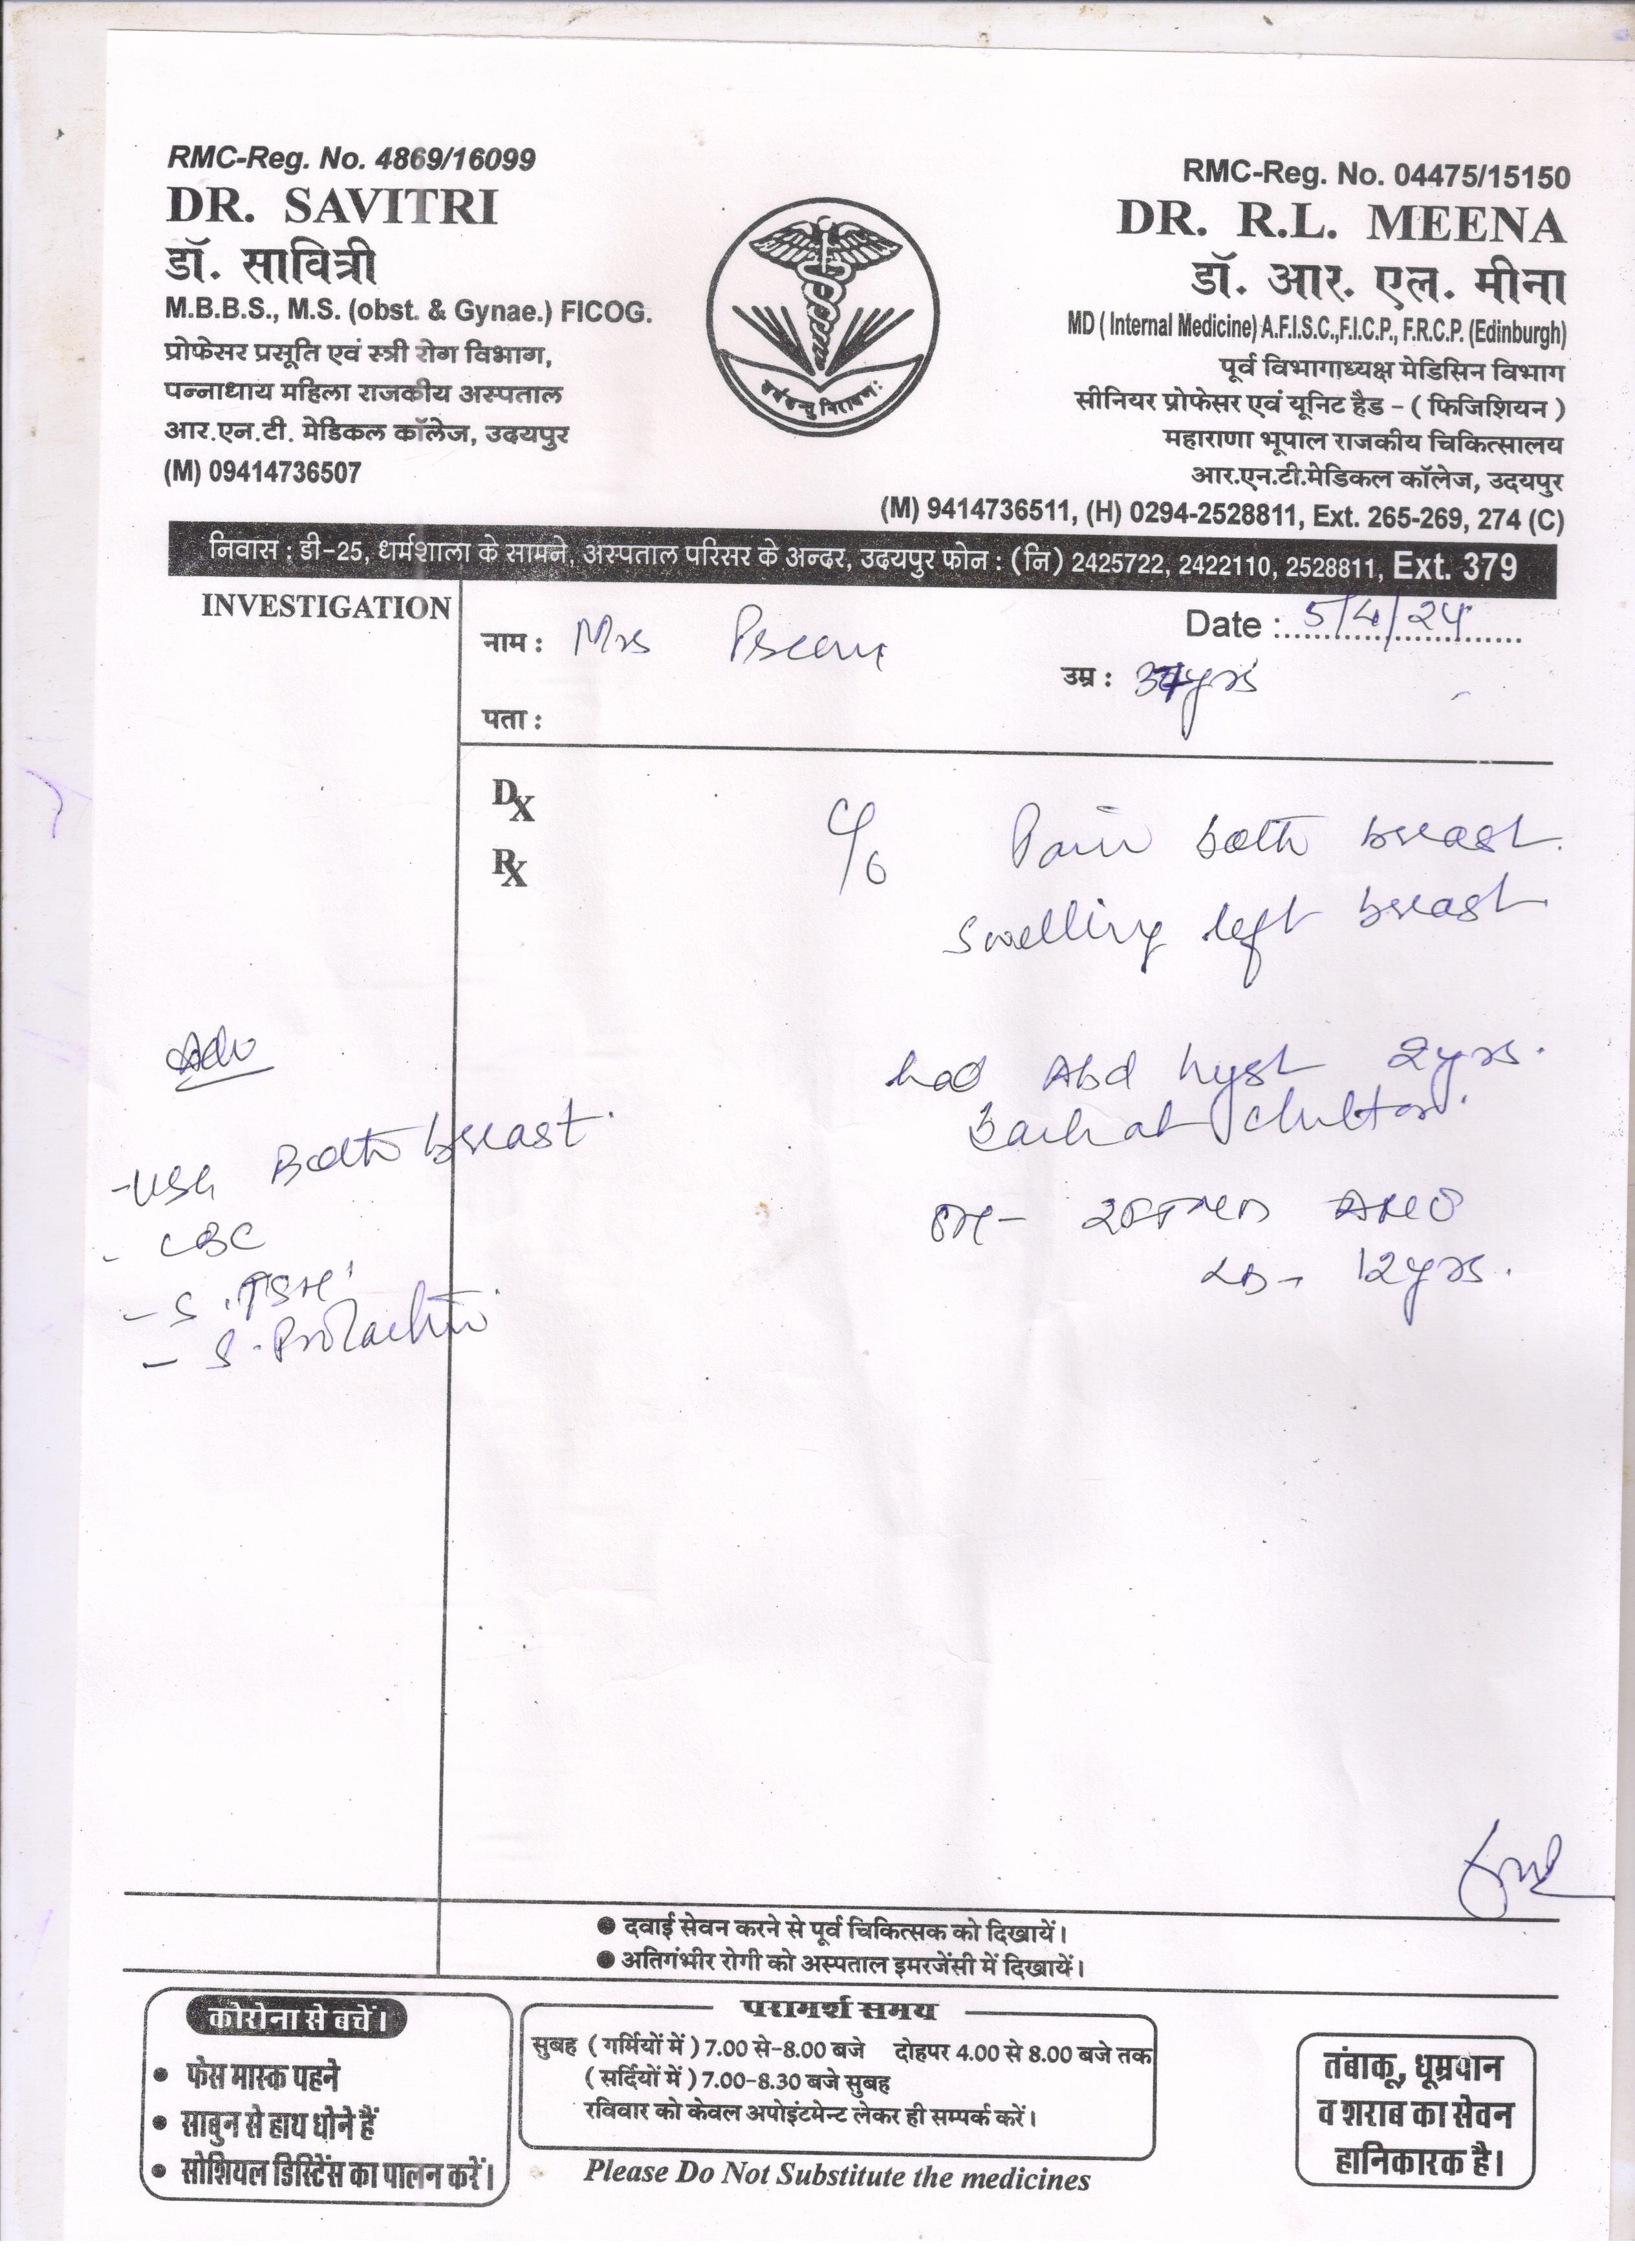 RMC-Reg. No. 4869/16099
DR. SAVITRI
डॉ. सावित्री
M.B.B.S., M.S. (obst. & Gynae.) FICOG.
प्रोफेसर प्रसूति एवं स्त्री रोग विभाग,
पन्नाधाय महिला राजकीय अस्पताल
आर.एन.टी. मेडिकल कॉलेज, उदयपुर
(M) 09414736507
RMC-Reg. No. 04475/15150
DR. R.L. MEENA
डॉ. आर. एल. मीना
MD ( Internal Medicine) A.F.I.S.C.,F.I.C.P., F.R.C.P. (Edinburgh)
पूर्व विभागाध्यक्ष मेडिसिन विभाग
सीनियर प्रोफेसर एवं यूनिट हैड - ( फिजिशियन )
महाराणा भूपाल राजकीय चिकित्सालय
आर.एन.टी.मेडिकल कॉलेज, उदयपुर
(M) 9414736511, (H) 0294-2528811, Ext. 265-269, 274 (C)
निवास : डी-25, धर्मशाला के सामने, अस्पताल परिसर के अन्दर, उदयपुर फोन : (नि) 2425722, 2422110, 2528811, Ext. 379
INVESTIGATION
Date : 5/4/24
नाम : Mrs
उम्र : 37yrs
पता :
Dx
Rx
C/o Pain both breast.
Swelling left breast.
had Abd hyst 2yrs.
back at
2FTND
LD - 12yrs.
Adv
- USG Both breast.
- CBC
- S. TSH
- S. Prolactin
● दवाई सेवन करने से पूर्व चिकित्सक को दिखायें।
● अतिगंभीर रोगी को अस्पताल इमरजेंसी में दिखायें।
कोरोना से बचें।
• फेस मास्क पहने
• साबुन से हाथ धोने हैं
• सोशियल डिस्टिेंस का पालन करें।
परामर्श समय
सुबह ( गर्मियों में ) 7.00 से-8.00 बजे दोहपर 4.00 से 8.00 बजे तक
( सर्दियों में ) 7.00-8.30 बजे सुबह
रविवार को केवल अपोइंटमेन्ट लेकर ही सम्पर्क करें।
Please Do Not Substitute the medicines
तंबाकू, धूम्रपान
व शराब का सेवन
हानिकारक है।